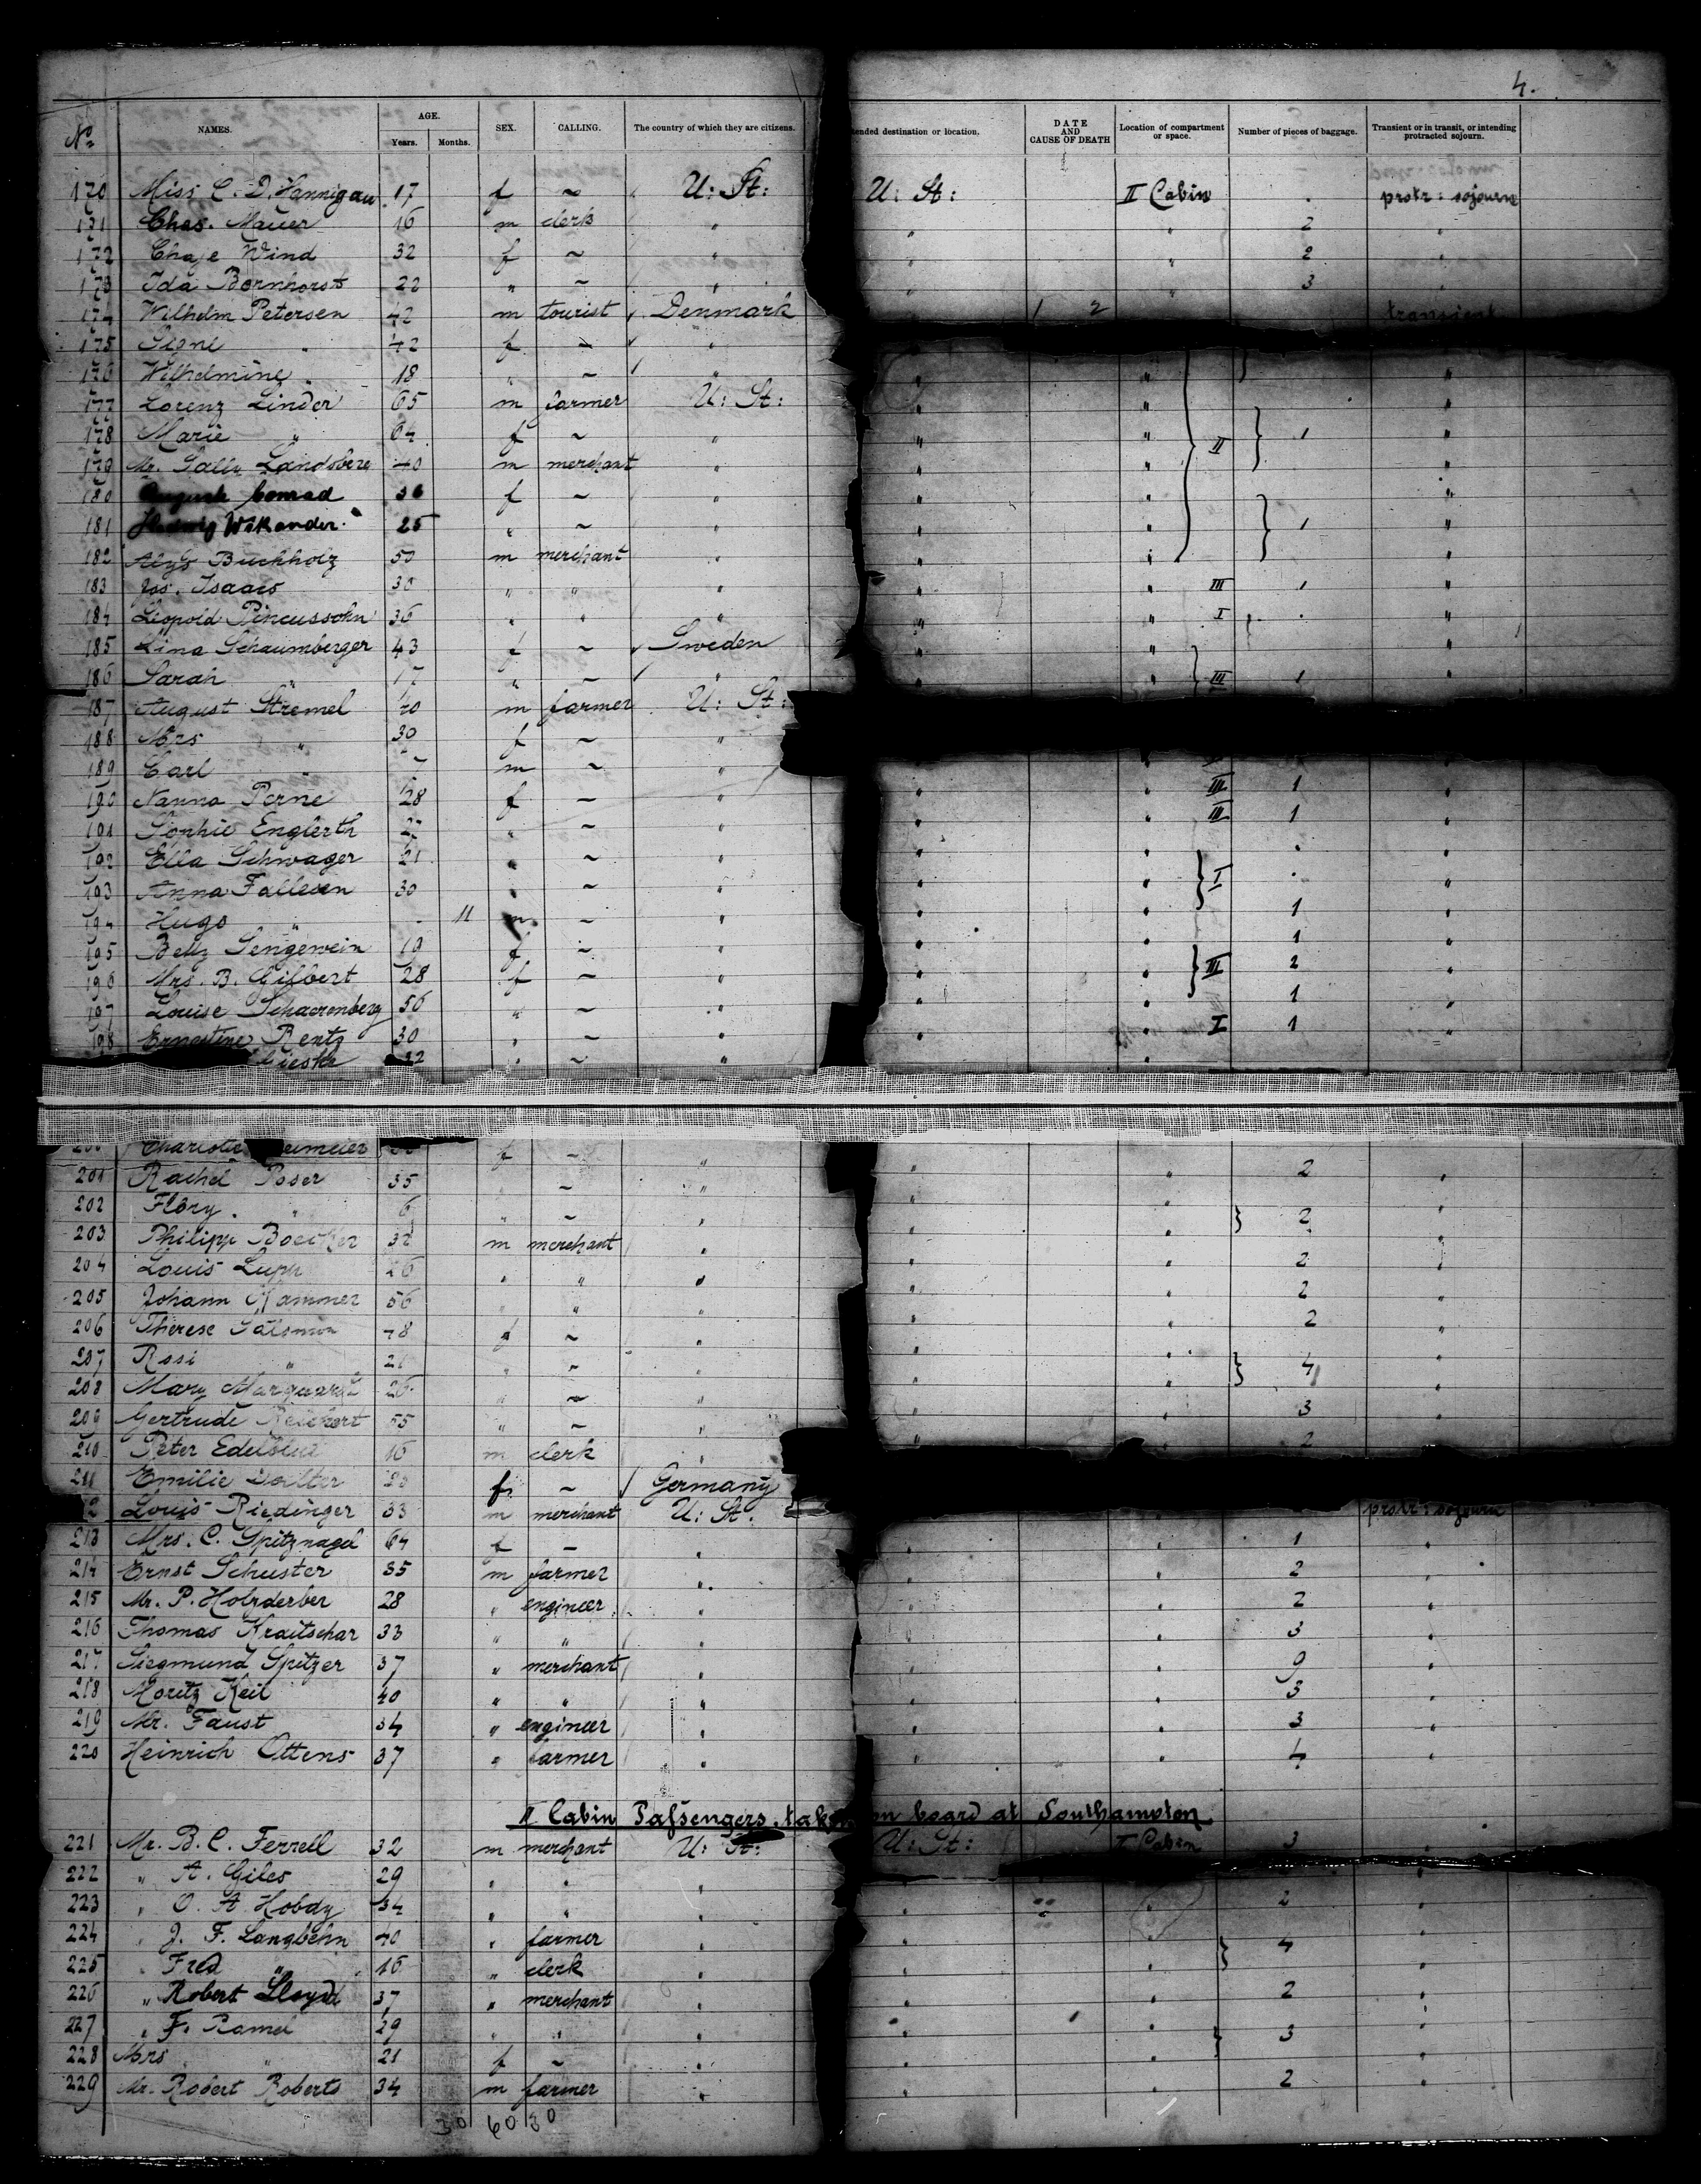 4.
No NAMES. AGE. Years. Months. SEX. CALLING. The country of which they are citizens. tended destination or location. DATE AND CAUSE OF DEATH Location of compartment or space. Number of pieces of baggage. Transient or in transit, or intending protracted sojourn.
170 Miss C. D. Hannigan 17 f ~ U: St: U: St: II Cabin protr: sojourn
171 Chas. Mauer 16 m clerk " " " 2 "
172 Chaje Wind 32 f ~ " " " 2 "
173 Ida Bornhorst 22 " ~ " " " 3 "
174 Wilhelm Petersen 42 m tourist Denmark 1 2 transient
175 Signe " 42 f ~ "
176 Wilhelmine " 18 " ~ " " " "
177 Lorenz Linder 65 m farmer U: St: " " "
178 Marie " 64 f ~ " " " II 1 "
179 Mr. Sally Landsberg 40 m merchant " " " "
180 Conrad 36 f ~ " " " "
181 Hedwig Wikander 25 " ~ " " " 1 "
182 Buchholz 50 m merchant " " "
183 Jos. Isaacs 30 " " " " " III 1 "
184 Leopold Pincussohn 36 " " " " " I "
185 Lina Schaumberger 43 f ~ Sweden " " "
186 Sarah " 17 " ~ " " " III 1 "
187 August Stremel 40 m farmer U: St:
188 Mrs " 30 f ~ "
189 Carl " m ~ "
190 Nanna Perne 28 f ~ " " " III 1 "
191 Sophie Englerth " ~ " " " III 1 "
192 Ella Schwager 21 " ~ " " "
193 Anna Fallesen 30 " ~ " " " I "
194 Hugo " - 11 m ~ " " " 1
195 Betty Sengewein 19 f ~ " " " 1 "
196 Mrs. B. Gilbert 28 f ~ " " " III 2 "
197 Louise Schaerenberg 56 " ~ " " " 1 "
198 Ernestine Rentz 30 " ~ " " " I 1 "
22 " ~ " "
Charlotte f ~ "
201 Rachel Poser 35 ~ " " " 2 "
202 Flory " 6 " ~ " " " 2 "
203 Philipp Boecker 32 m merchant " " "
204 Louis Lupp 26 " " " " " 2 "
205 Johann Hammer 56 " " " " " 2 "
206 Therese Salomon 48 f ~ " " " 2 "
207 Rosi " " ~ " " " 4 "
208 Mary Marquardt 26 " ~ " " " "
209 Gertrude Reichert 55 " ~ " " " 3 "
210 Peter 16 m clerk " " 2
211 Emilie f ~ Germany
2 Louis Riedinger 33 m merchant U: St. protr: sojourn
213 Mrs. C. Spitznagel 64 f ~ " " " 1 "
214 Ernst Schuster 35 m farmer " " " 2 "
215 Mr. P. Holzderber 28 " engineer " " " 2 "
216 Thomas Kraitschar 33 " " " " " 3 "
217 Siegmund Spitzer 37 " merchant " " " 9 "
218 Moritz Keil 40 " " " " " 3 "
219 Mr. Faust 34 " engineer " " " 3 "
220 Heinrich Ottens 37 " farmer " " " 4 "
II Cabin Passengers taken on board at Southampton
221 Mr. B. C. Ferrell 32 m merchant U: St: U: St: II Cabin 3 "
222 " A. Giles 29 " " " "
223 " O. A. Hobdy 34 " " " " " 2 "
224 " J. F. Langbehn 40 " farmer " " " 4 "
225 " Fred " 16 " clerk " " " "
226 " Robert Lloyd 37 " merchant " " " 2 "
227 " F. Ramel 29 " " " " " 3 "
228 Mrs " 21 f ~ " " " "
229 Mr. Robert Roberts 34 m farmer " " " 2 "
30 60 30